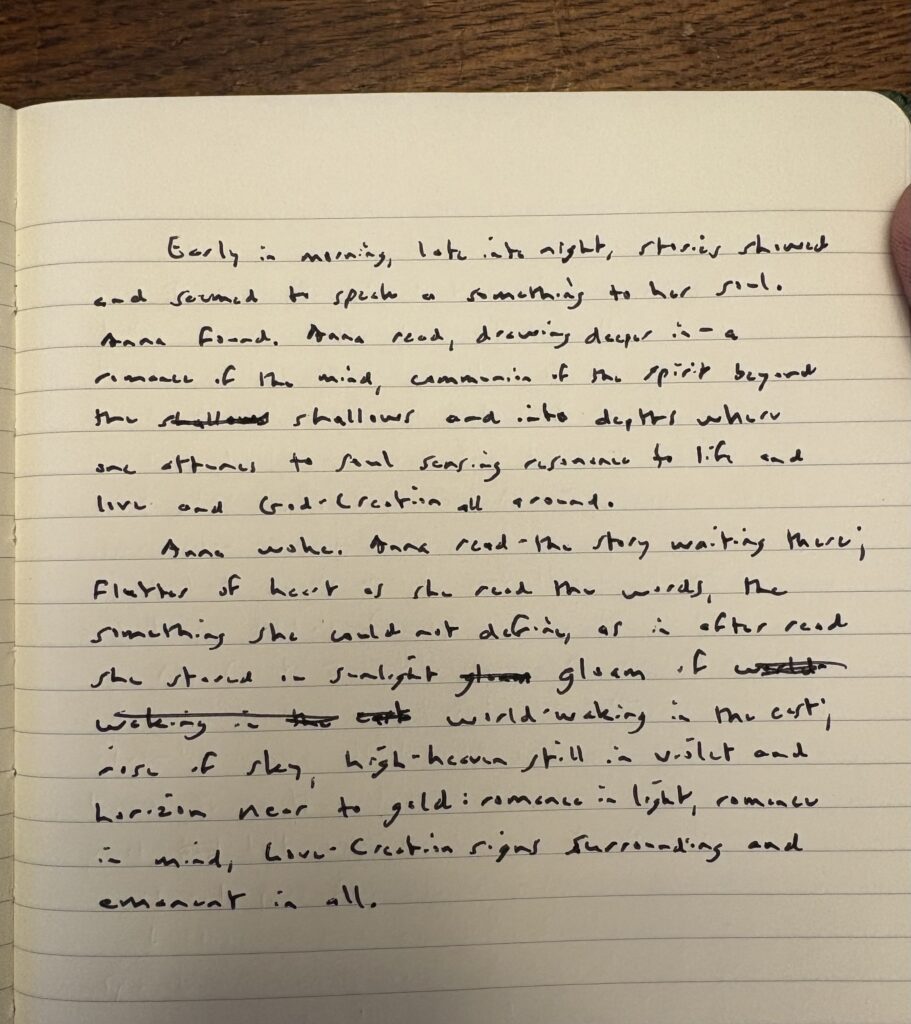 Early in morning, late into night, stories showed
and seemed to speak a something to her soul.
Anna found. Anna read, drawing deeper in - a
romance of the mind, communion of the spirit beyond
the shallows shallows and into depths where
one attunes to soul sensing resonance to life and
love and God-Creation all around.
Anna woke. Anna read - the story waiting there;
flutter of heart as she read the words, the
something she could not define, as in after read
she stared in sunlight gloam gleam of world-
waking in the east world-waking in the east;
rise of sky, high-heaven still in violet and
horizon near to gold: romance in light, romance
in mind, Love-Creation signs surrounding and
emanant in all.